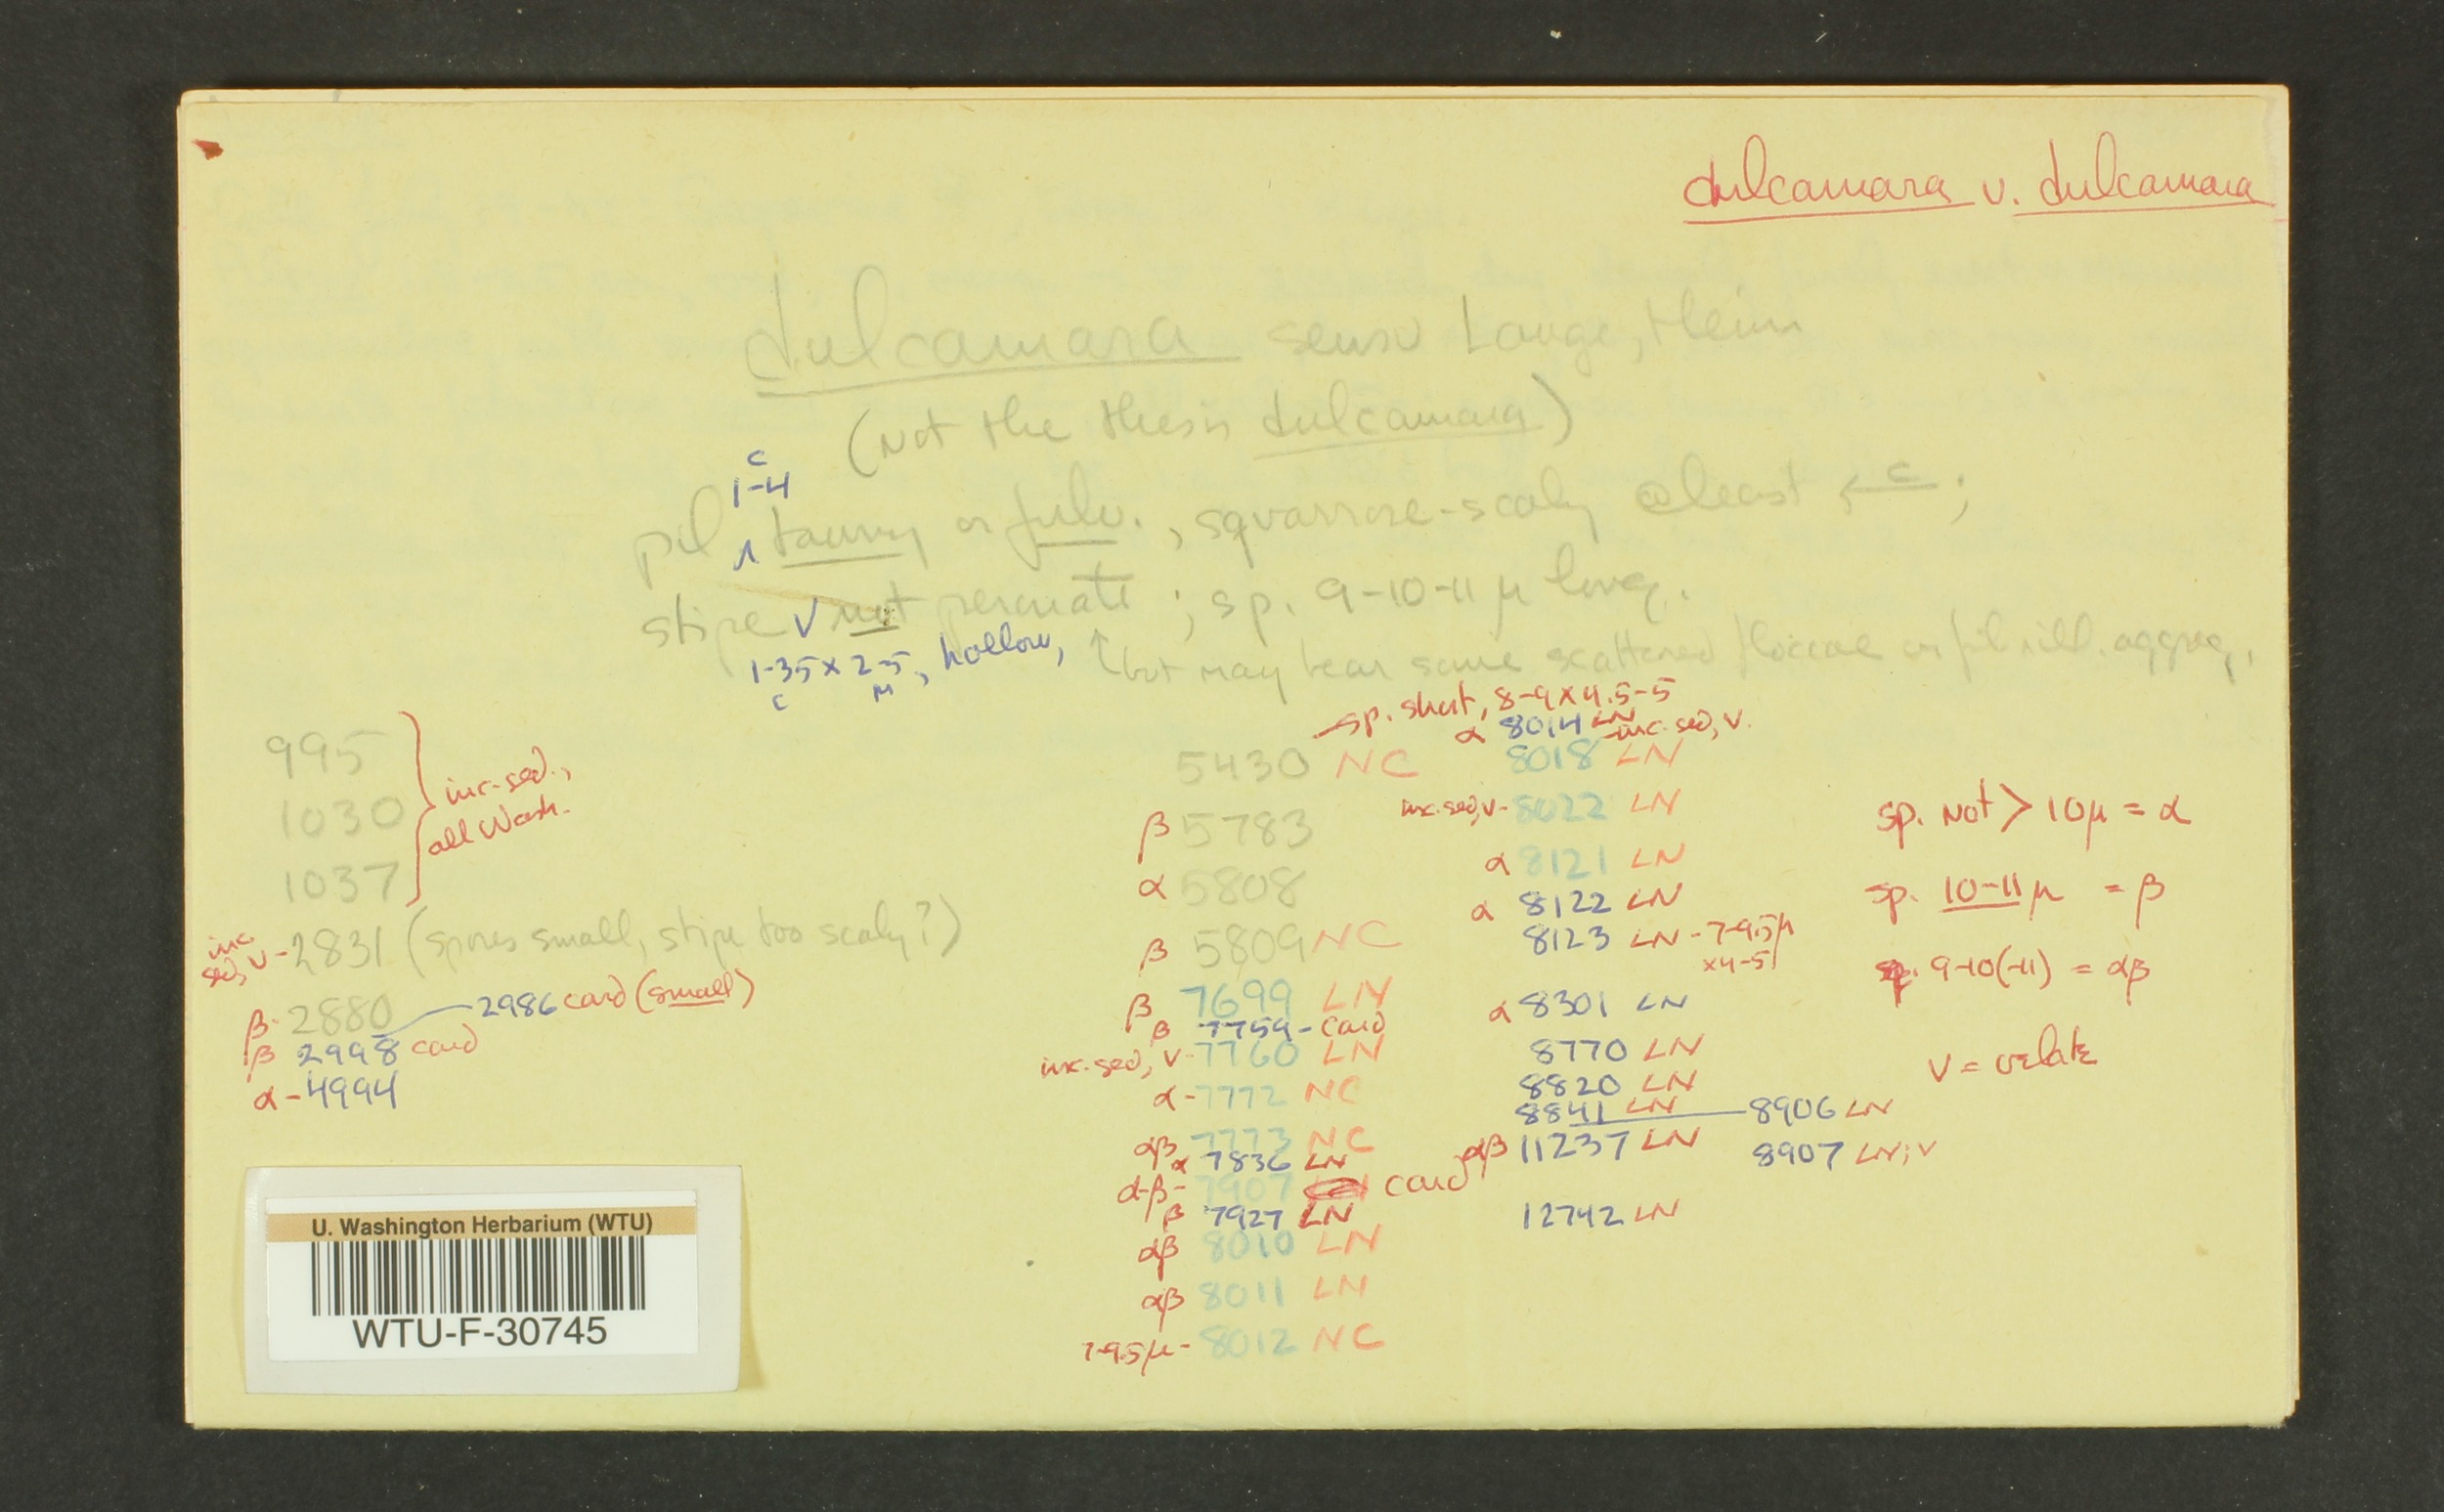 dulcamara v. dulcamara
dulcamara sensu Lange, Heim
(not the thesis dulcamara)
c
1-4
pil ʌ tawny or fulv., squarrose-scaly @ least ← c ;
stipe v not peronate ; sp. 9-10-11 µ long.
1-3.5 x 2-5, hollow, ↑ but may bear some scattered floccae or fibrill. aggreg.
c m
995
1030
1037
} inc. sed.,
all Wash.
inc. sed, v - 2831 (spores small, stipe too scaly?)
β - 2880 — 2986 card (small)
β 2998 card
α - 4994
5430 NC - sp. short, 8-9 x 4.5-5
β 5783
α 5808
β 5809 NC
β 7699 LN
β 7759 - card
inc. sed, v - 7760 LN
α - 7772 NC
αβ 7773 NC
α 7836 LN
α-β - 7907 card
β 7927 LN
αβ 8010 LN
αβ 8011 LN
7-9.5µ - 8012 NC
α 8014 LN
8018 LN - inc. sed, v.
inc. sed, v - 8022 LN
α 8121 LN
α 8122 LN
8123 LN - 7-9.5µ
x 4-5
α 8301 LN
8770 LN
8820 LN
8841 LN — 8906 LN
αβ 11237 LN
8907 LN; v
12742 LN
sp. not > 10µ = α
sp. 10-11 µ = β
sp. 9-10(-11) = αβ
v = velate
U. Washington Herbarium (WTU)
WTU-F-30745